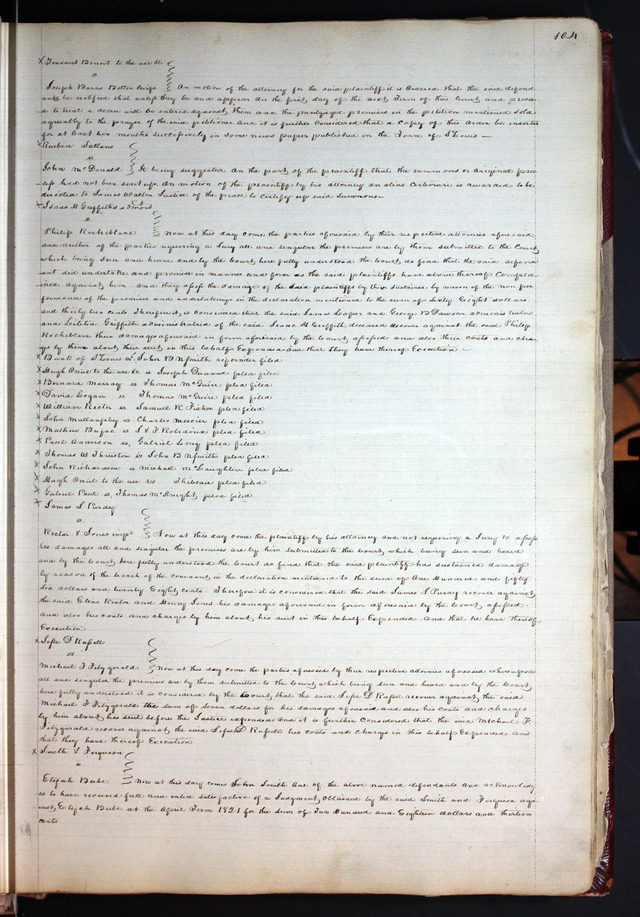 104
x Toussant Benoit to the use &c
vs
Joseph Barns Bottee Anifs } On motion of the attorney for the said plaintiff it is ordered that the said defend
ants be notified that unless they be and appear on the first day of the next Term of this Court and procee
d to trial a decree will be entered against them and the mortgaged premises in the petition mentioned sold
agreeably to the prayer of the said petitioner and it is further considered that a copy of this order be inserted
for at least two months successively in some news paper published in the Town of St Louis
x Reuben Sallens
vs
John McDonald } It being suggested on the part of the plaintiff that the summons or original proc
ess had not been sent up. On motion of the plaintiff by his attorney an alias Certiorari is awarded to be
directed to James Walton Justice of the peace to certify up said summons
x Isaac H Griffith's admors
vs
Philip Rocheblave } Now at this day came the parties aforesaid by their respective attornies aforesaid
and neither of the parties requiring a Jury all and singular the premises are by them submitted to the Court
which being seen and heard and by the Court here fully understood the Court do find that the said defend
ant did undertake and promise in manner and form as the said plaintiffs have above thereof Complai
ned against him and they assess the damage of the said plaintiffs by them sustained by reason of the non per
formances of the promises and undertakings in the declaration mentioned to the sum of Sixty Eight dollars
and thirty two cents Therefore it is considered that the said James Cooper and George B Dawson administrators
and Letitia Griffith administratrix of the said Isaac H Griffith deceased recover against the said Philip
Rocheblave their damages aforesaid in form aforesaid by the Court assessed and also their costs and char
ges by them about their suit in this behalf Expended and that they have thereof Execution
x Bank of St Louis vs John B N Smith rejoinder filed
x Hugh Oneil to the use &c vs Joseph Dunand plea filed
x Bernard Murray vs Thomas McGuire plea filed
x David Logan vs Thomas McGuire plea filed
x William Rector vs Samuel R Fisher plea filed
x John Mullanphy vs Charles Mercier plea filed
x Mathew Dufae vs L & F Robidoux plea filed
x Paul Anderson vs Gabriel Long plea filed
x Thomas W Thruston vs John B N Smith plea filed
x John Richardson vs Michael McLaughlin plea filed
x Hugh Oneil to the use vs Thibeau plea filed
x Gabriel Paul vs Thomas McKnight plea filed
x James S Purdy
vs
Rector & Jones impd } Now at this day came the plaintiff by his attorney and not requiring a Jury to assess
his damages all and singular the premises are by him submitted to the Court which being seen and heard
and by the Court here fully understood the Court do find that the said plaintiff has sustained damage
by reason of the breach of the covenant in the declaration mentioned to the sum of One Hundred and fifty
six dollars and twenty Eight cents. Therefore it is considered that the said James S Purdy recover against
the said Elias Rector and Henry Jones his damages aforesaid in form aforesaid by the Court assessed
and also his costs and charges by him about his suit in this behalf Expended. And that he have thereof
Execution
x Jesse D Russell
vs
Michael F Fitzgerald } Now at this day came the parties aforesaid by their respective attornies aforesaid whereupon
all and singular the premises are by them submitted to the Court which being seen and heard and by the Court
here fully understood it is considered by the Court that the said Jesse D Russell recover against the said
Michael F Fitzgerald the sum of Seven dollars for his damages aforesaid and also his costs and charges
by him about his suit before the Justice expended and it is further considered that the said Michael F
Fitzgerald recover against the said Jesse D Russell his costs and charges in this behalf Expended And
that they have thereof Execution
x Smith & Ferguson
vs
Elijah Bebe } Now at this day came John Smith one of the above named defendants and acknowledg
es to have received full and entire satisfaction of a Judgment obtained by the said Smith and Ferguson aga
inst Elijah Bebe at the April Term 1821 for the sum of Two Hundred and Eighteen dollars and thirteen
cents